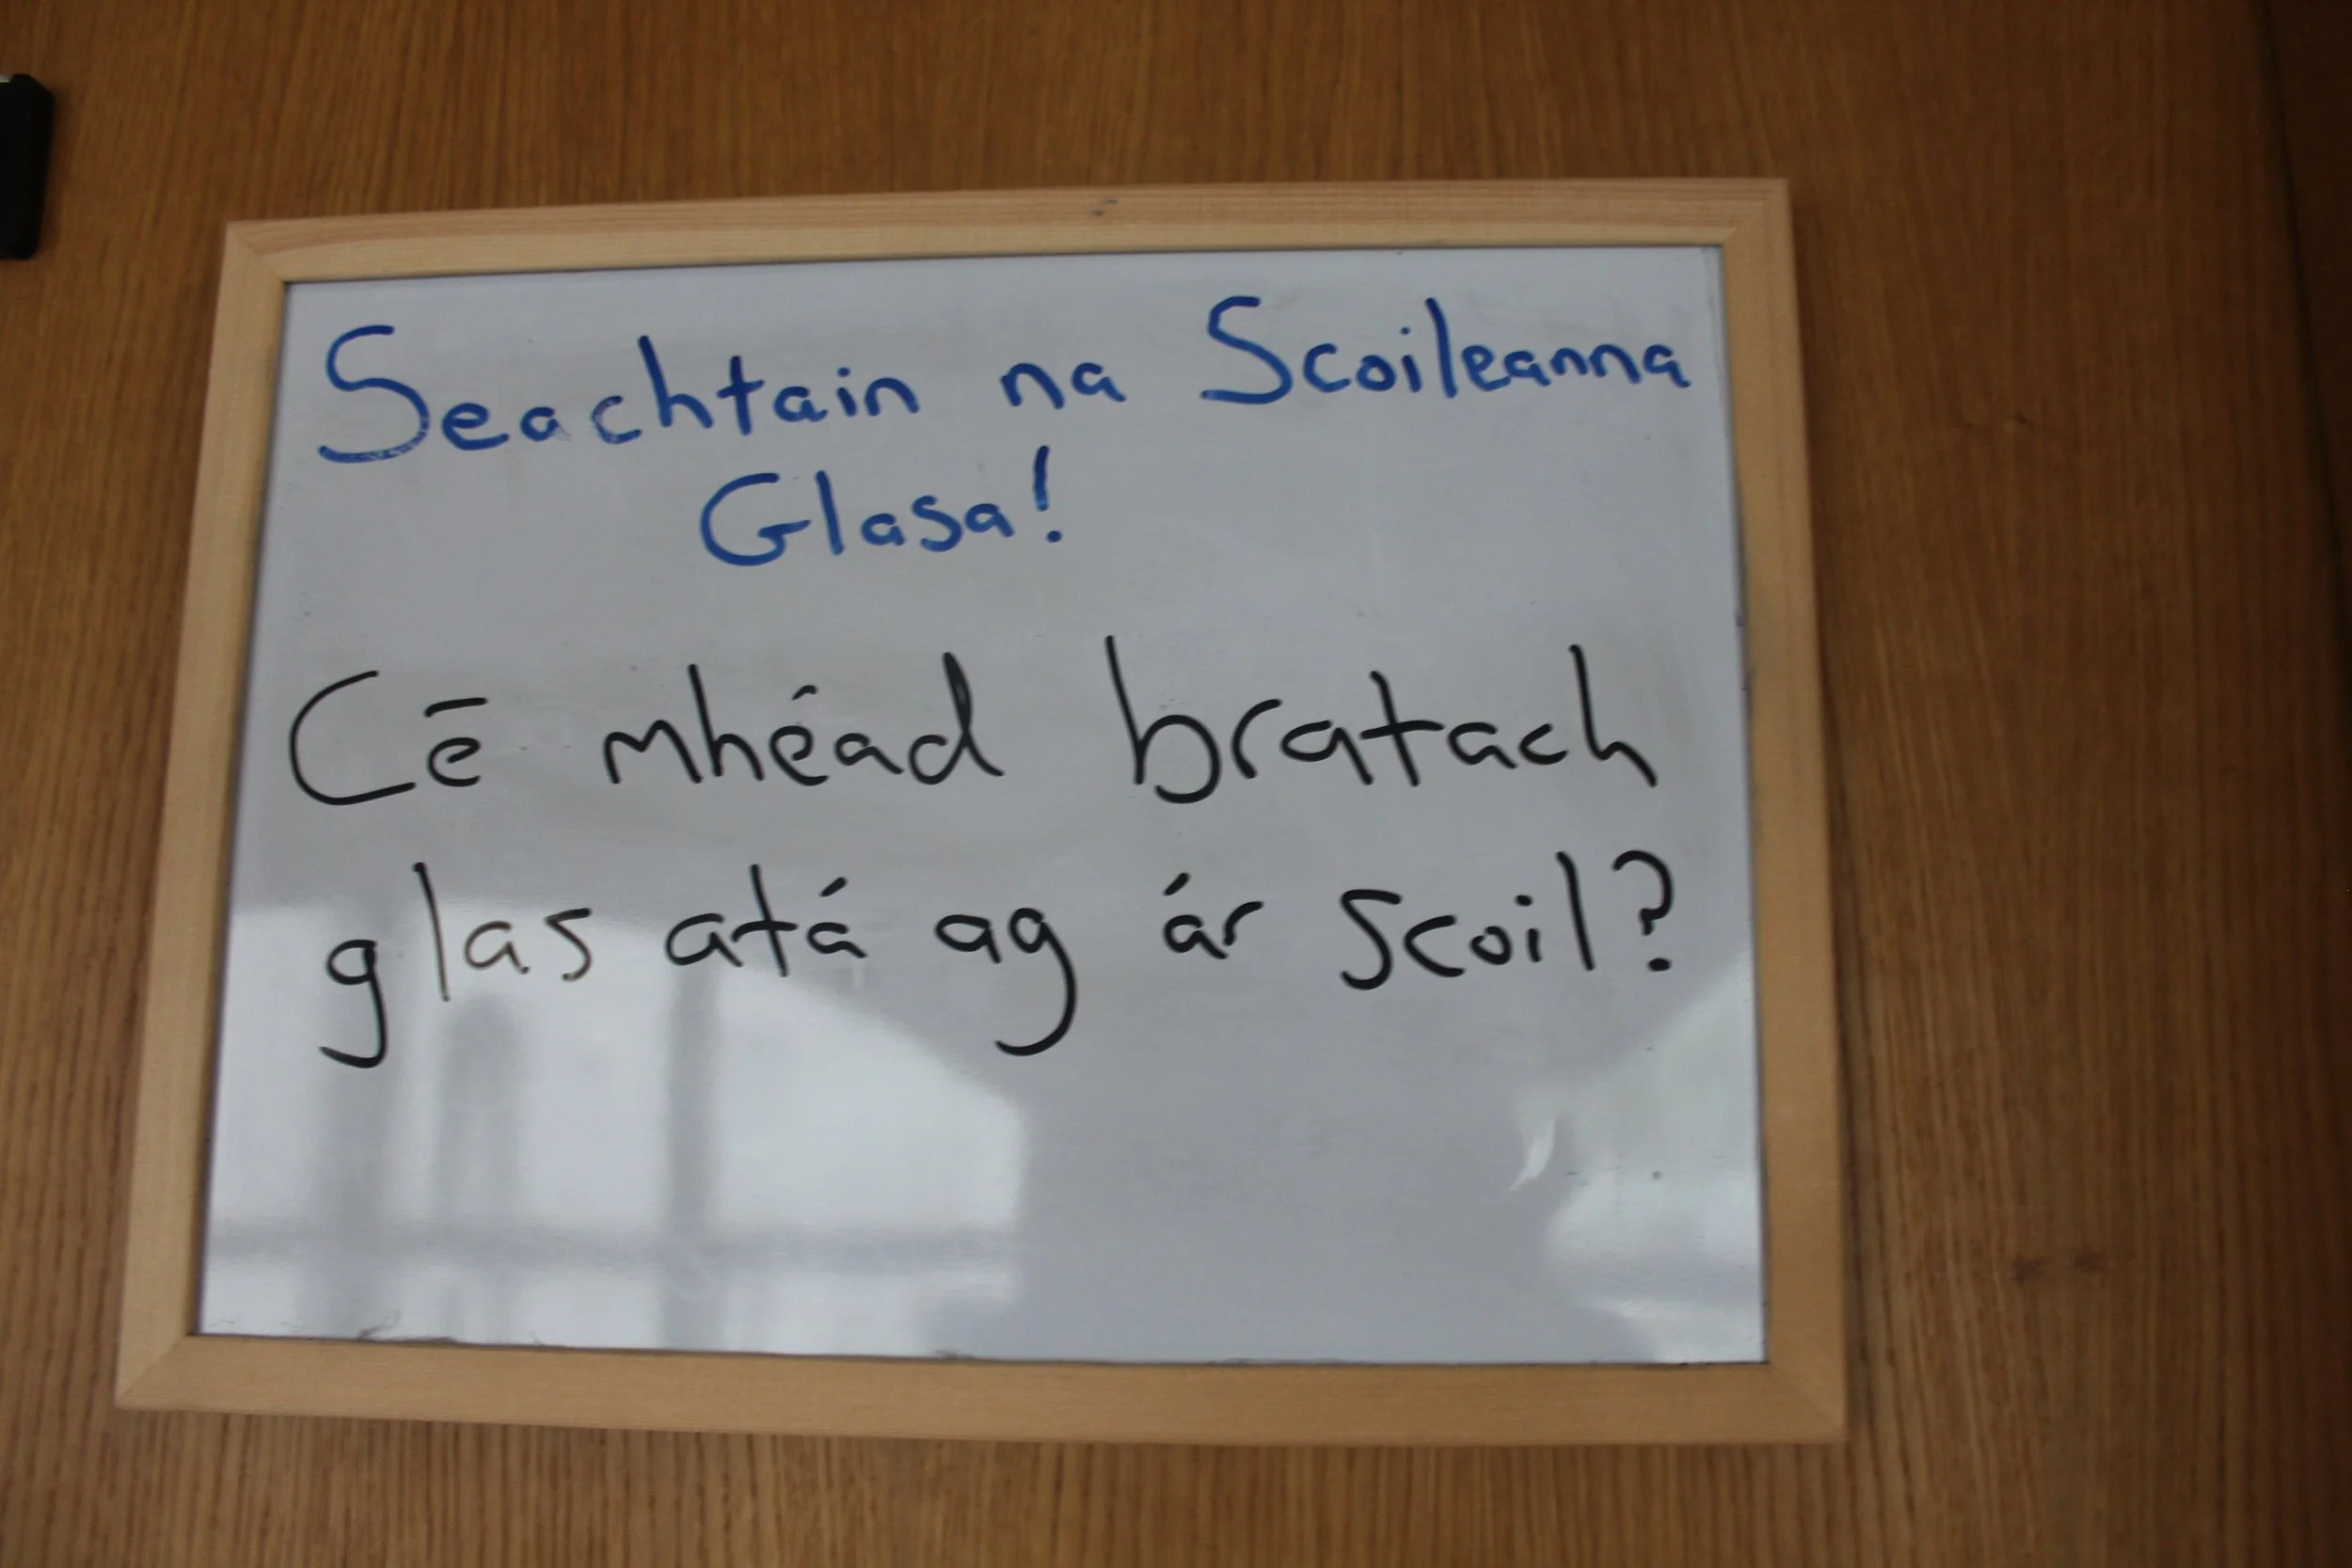 Seachtain na Scoileanna
Glasa!
Cé mhéad bratach
glas atá ag ár scoil?